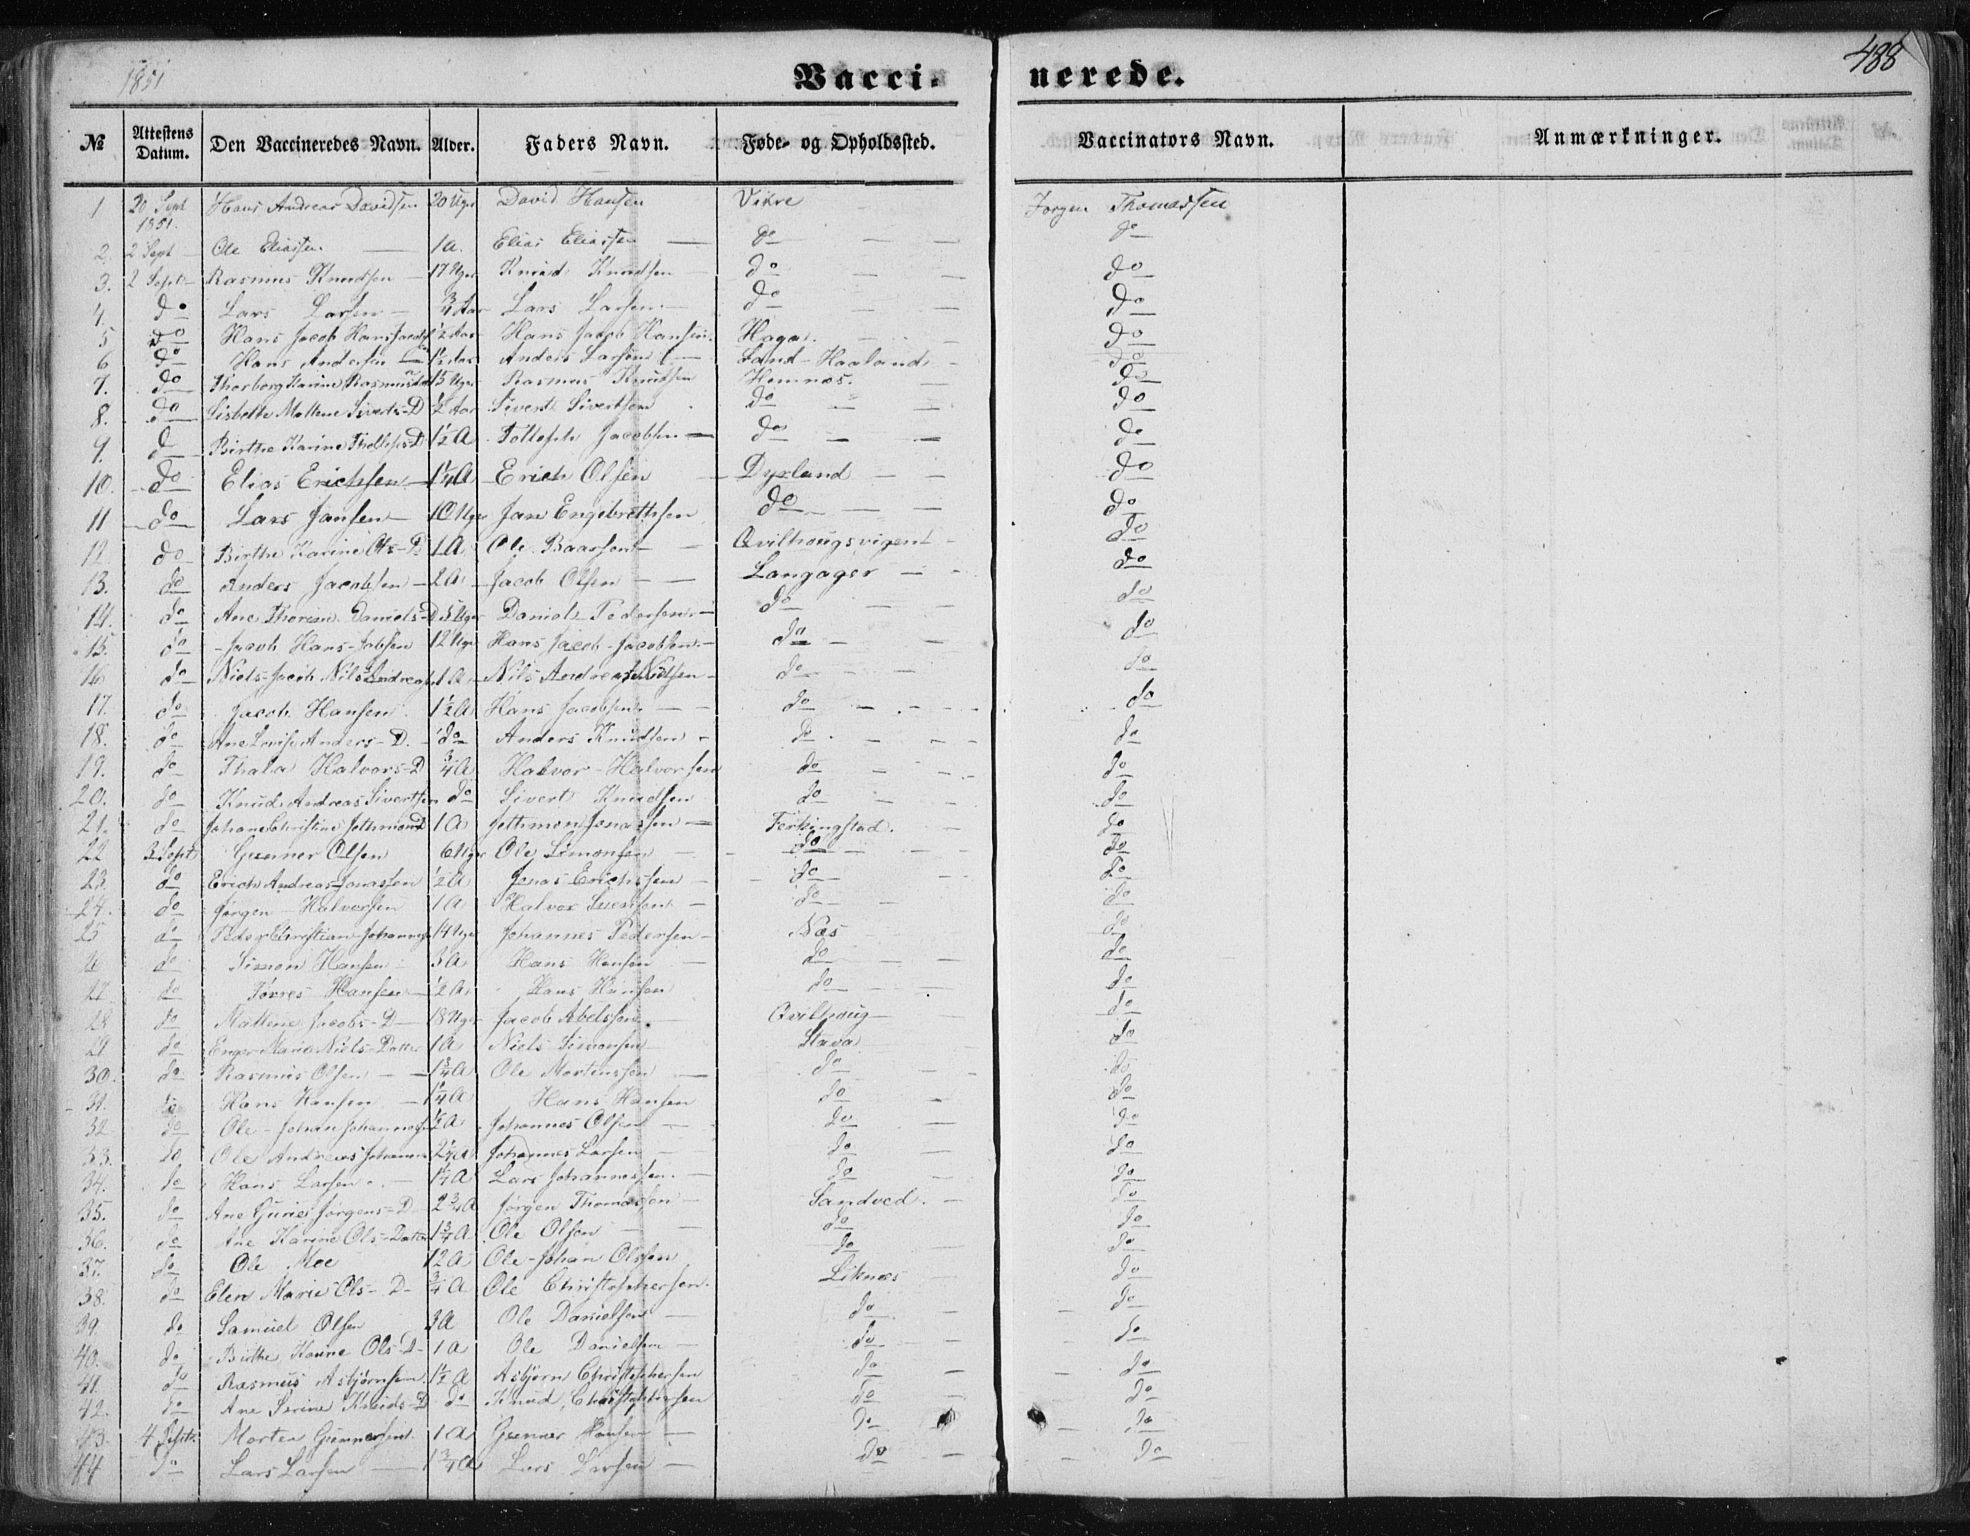 1851
Vaccinerede.
488
№ Attestens Datum. Den Vaccineredes Navn. Alder. Faders Navn. Føde- og Opholdssted. Vaccinators Navn. Anmærkninger.
1 20 Sept 1851. Hans Andreas Davidsen 20 Uger David Hansen Vikre Jørgen Thomassen
2. 2 Sept Ole Eliassen 1 a. Elias Eliassen do do
3. 2 Sept Rasmus Knudsen 17 Uger Knud Knudsen do do
4. do Lars Larsen 3/4 Aar Lars Larsen do do
5 do Hans Jacob 1/2 Aar Hans Jacob Hansen Haga do
6 do Hans Andersen 1/2 Aar Anders Larsen Sand-Haaland do
7. do Thorborg Karine 15 Uger Rasmus Knudsen Hemnæs. do
8. do Lisbette Mallene Siverts-D 1/2 Aar Sivert Sivertsen do do
9. do Birthe Karine 1 1/2 A Tollefsen Jacobsen do do
10. do Elias Erichsen 1 1/4 A Erich Olsen Dyrland do
11 do Lars Jansen 10 Uger Jan Engebrethsen do do
12 do Birthe Karine Ols-D 1 A Ole Baarsen Qvilhougsvigen do
13. do Anders Jacobsen 2 A Jacob Olsen Langager do
14. do Ane Daniels-D Uger Daniel Pedersen do do
15. do Jacob Hans- 12 Uger Hans Jacob Jacobsen do do
16 do Niels Jacob 1 A Nils Andreas Nilsen do do
17. do Jacob Hansen 1 1/2 A Hans Jacobsen do do
18. do Ane Lovise Anders-D. do Anders Knudsen do do
19. do Thala Halvors-D 3/4 A Halvor Halvorsen do do
20. do Knud Andreas Sivertsen do Sivert Knudsen do do
21. do Johane Christine 1 A Jonassen Ferkingstad. do
22 3 Sept Gunner Olsen 6 Uger Ole Simonsen do do
23. do Erich Andreas Jonassen 1/2 A Jonas Erichsen do do
24. do Jørgen Halvorsen 1 A Halvor do do
25 do Peder Christian 14 Uger Johannes Pedersen Næs do
26 do Simon Hansen 3 A Hans Hansen do do
27 do Torres Hansen 1/2 A Hans Hansen do do
28 do Mallene Jacobs-D 18 Uger Jacob Abelsen Qvilhoug do
29 do Enger Marie Niels-Datter 1 A Niels Simonsen Stava do
30. do Rasmus Olsen 1 3/4 A Ole Mortensen do do
31. do Hans Hansen 1 1/4 A Hans Hansen do do
32 do Ole Johan 1/2 A Johannes Olsen do do
33. do Ole Andreas 2 1/4 A Johannes Larsen do do
34. do Hans Larsen A Lars Johannessen do do
35. do Ane Jørgens-D 2 3/4 A Jørgen Thomassen Sandved. do
36. do Ane Karine Ols-Datter 1 3/4 A Ole Olsen do do
37. do Ole Moe 12 A Ole Johan Olsen do do
38. do Elen Marie Ols-D 3/4 A Ole Christophersen Liknæs do
39. do Samuel Olsen 3 A Ole Danielsen do do
40. do Birthe Ols-D 1 A Ole Danielsen do do
41. do Rasmus Asbjørnsen 1 1/2 A Asbjørn Christophersen do do
42. do Ane Serine Knuds-D do Knud Christophersen do do
43. 4 Sept. Morten Gunnersen 1 A Gunner Hansen do do
44 do Lars Larsen 1 3/4 A Lars Larsen do do